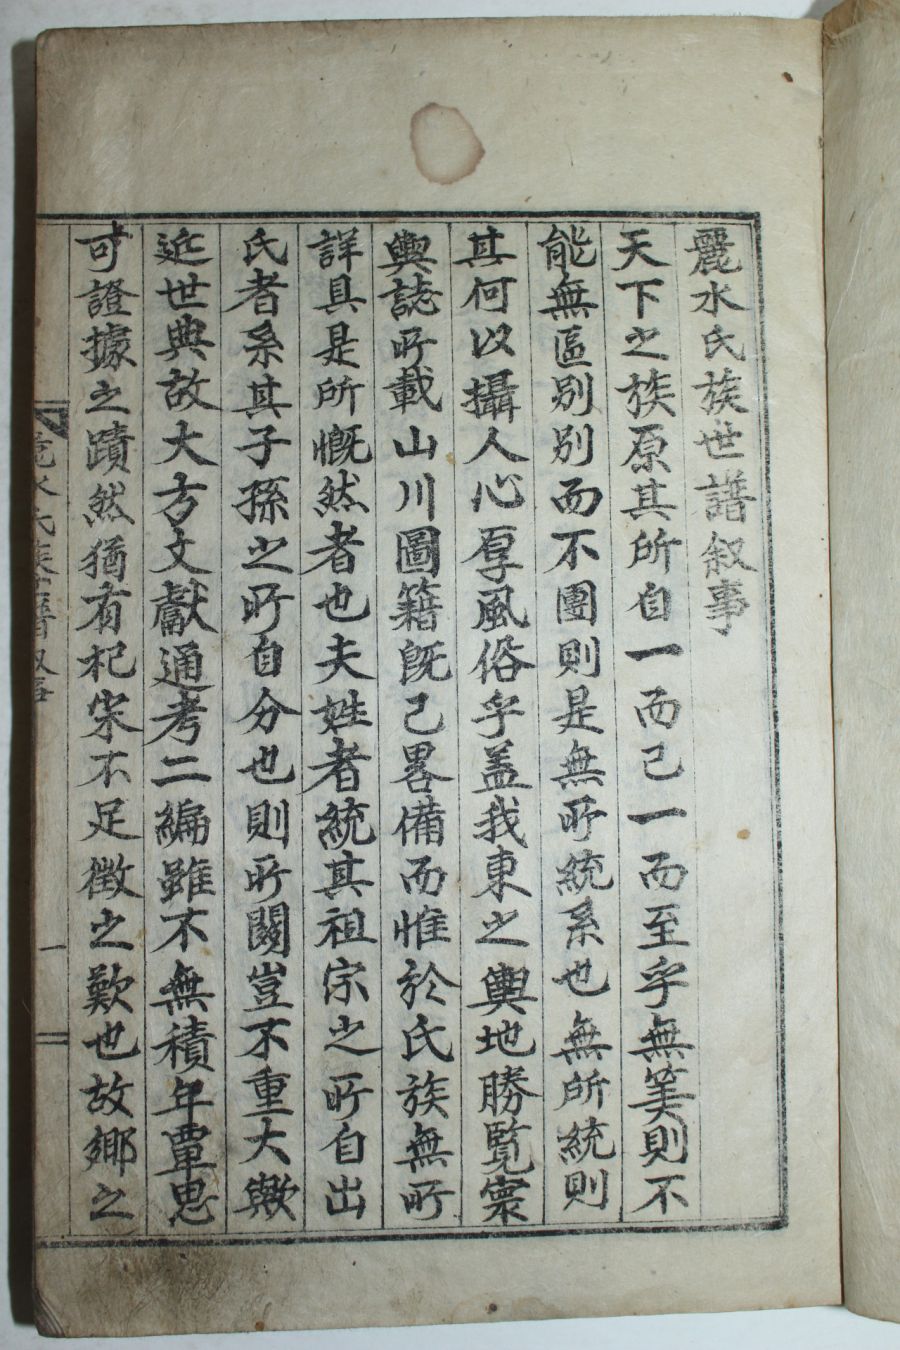 麗水氏族世譜叙事
天下之族原其所自一而己一而至乎無筭則不
能無區別別而不團則是無所統系也無所統則
其何以攝人心厚風俗乎盖我東之輿地勝覽寰
輿誌所載山川圖籍旣己畧備而惟於氏族無所
詳具是所慨然者也夫姓者統其祖宗之所自出
氏者系其子孫之所自分也則所關豈不重大歟
近世典故大方文獻通考二編雖不無積年覃思
可證據之蹟然猶有杞宋不足徴之歎也故鄕之
麗水氏族世譜叙事
一